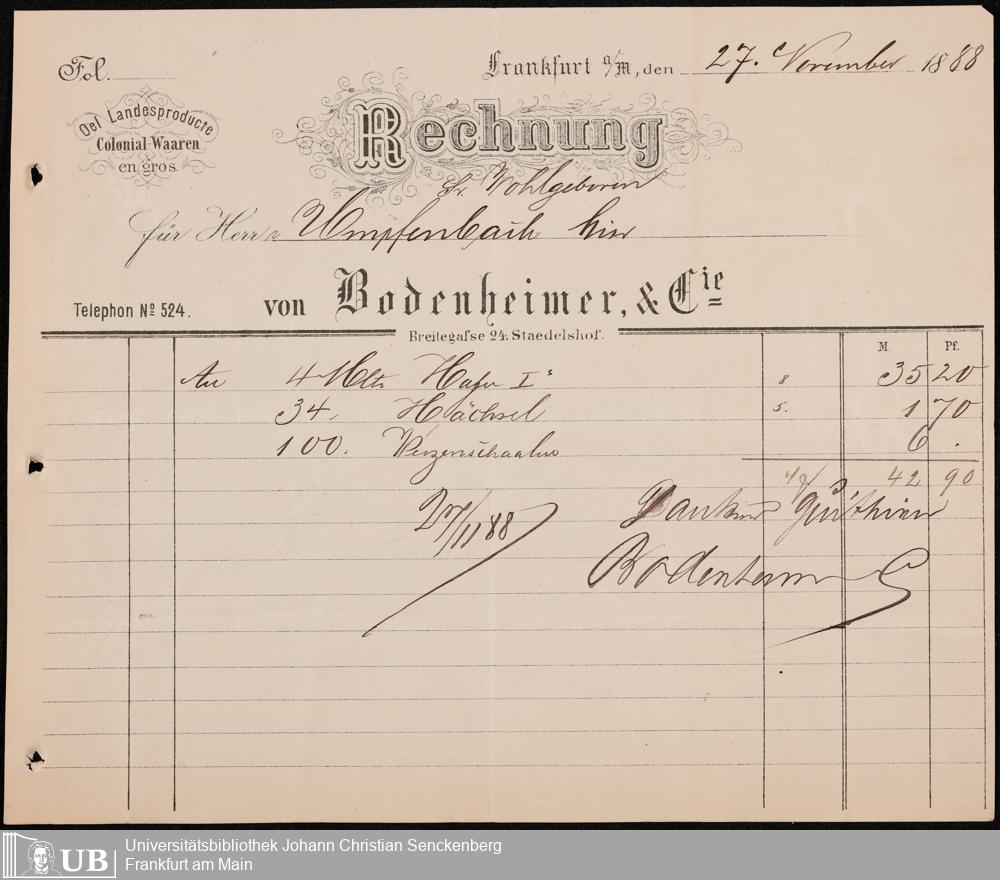 Fol.
Frankfurt a/M, den 27. November 1888
Oel Landesproducte
Colonial-Waaren
en gros.
Rechnung
Sr. Wohlgeboren
für Herrn Umpfenbach hier
Telephon No 524.
von Bodenheimer, & Cie
Breitegasse 24. Staedelshof.
M. Pf.
An 4 Mltr Hafer Ia 8 35 20
34. Häcksel 5. 1 70
100. Weizenschaalen 6 .
42 90
27/11 88 Dankend
Bodenheimer
Universitätsbibliothek Johann Christian Senckenberg
Frankfurt am Main
UB